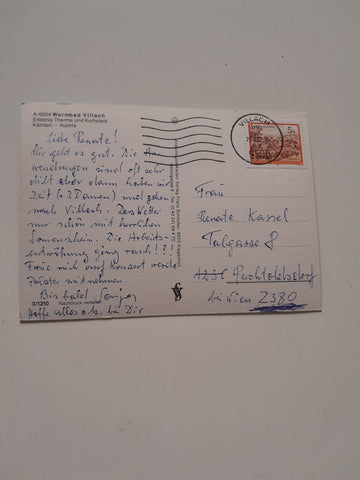 A-9504 Warmbad Villach
Erlebnis Therme und Kurhotels
Kärnten – Austria
Liebe Renate!
Mir geht es gut. Die An-
wendungen sind oft sehr
dicht aber dann haben wir
Zeit (2 Damen) und gehen
nach Villach. Das Wetter
nur schön mit herrlichen
Sonnenschein. Die Arbeits-
entwöhnung ging rasch!!!
Freue mich auf Konzert werde
mitnehmen
Bis bald
3/1210 Nachdruck verboten
Hoffe alles o.k. bei Dir
VILLACH
5 S
Frau
Renate Kassel
Talgasse 8
1236 Perchtoldsdorf
bei Wien 2380